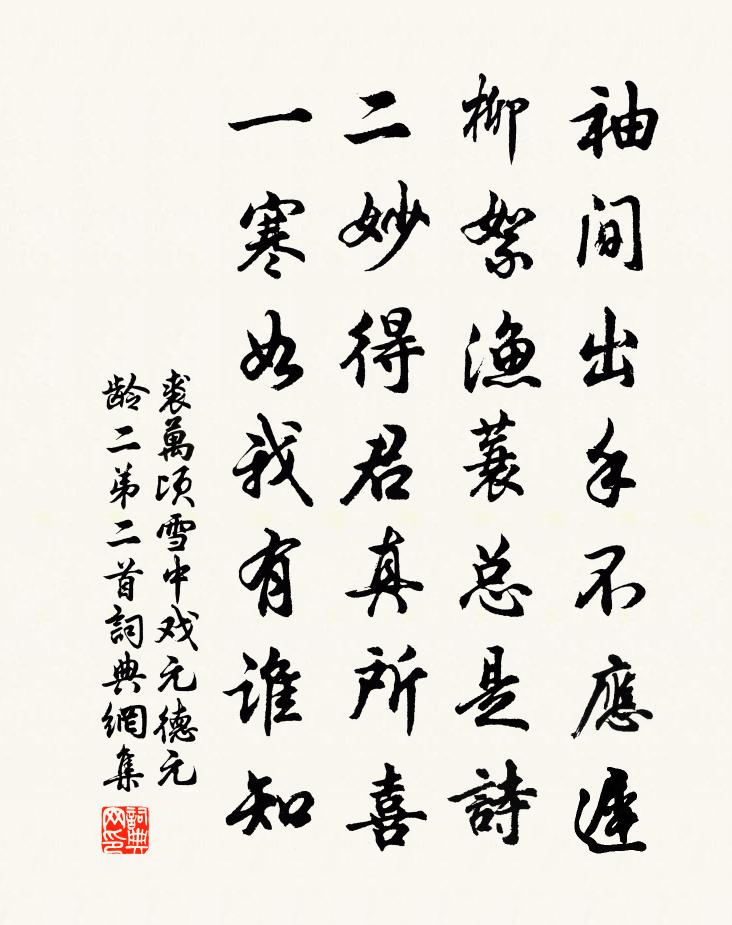 袖间出手不應遲
柳絮漁蓑总是詩
二妙得君真所喜
一寒如我有谁知
裘萬頃雪中戏元德元
龄二弟二首詞典網集
詞典网印